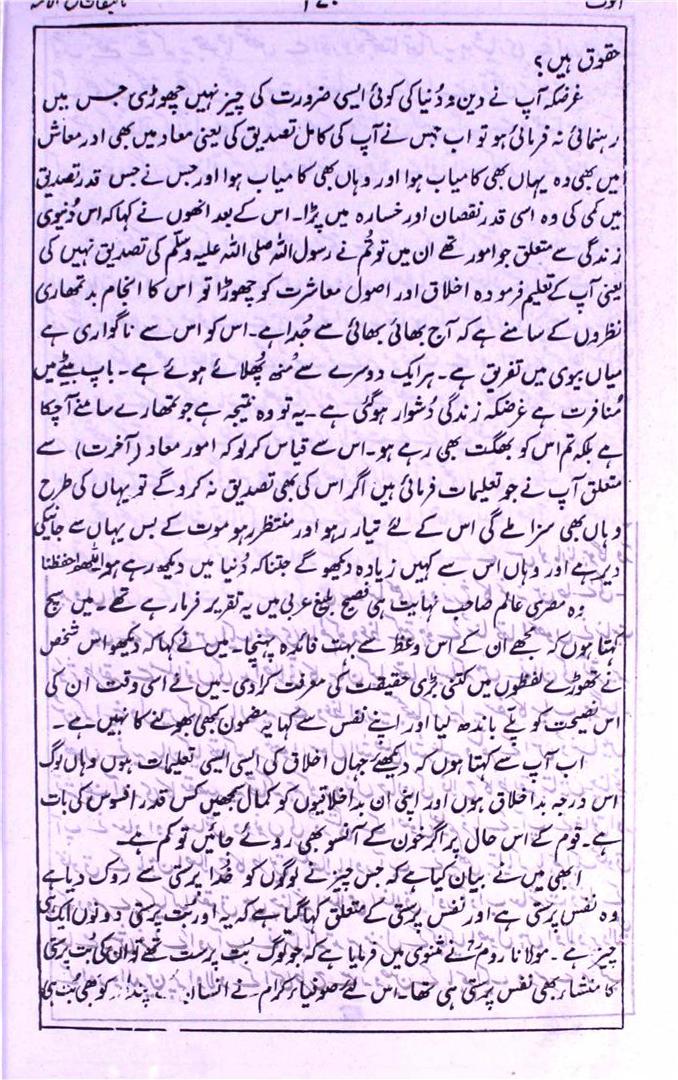 حقوق ہیں؟
غرضکہ آپ نے دین و دُنیا کی کوئی ایسی ضرورت کی چیز نہیں چھوڑی جس میں
رہنمائی نہ فرمائی ہو تو اب جس نے آپ کی کامل تصدیق کی یعنی معاد میں بھی اور معاش
میں بھی وہ یہاں بھی کامیاب ہوا اور وہاں بھی کامیاب ہوا اور جس نے جس قدر تصدیق
میں کمی کی وہ اسی قدر نقصان اور خسارہ میں پڑا۔ اس کے بعد انھوں نے کہا کہ اس دُنیوی
زندگی سے متعلق جو امور تھے ان میں تو تُم نے رسول اللہ صلی اللہ علیہ وسلم کی تصدیق نہیں کی
یعنی آپ کے تعلیم فرمودہ اخلاق اور اصول معاشرت کو چھوڑا تو اس کا انجام بد تمھاری
نظروں کے سامنے ہے کہ آج بھائی بھائی سے جُدا ہے۔ اس کو اس سے ناگواری ہے
میاں بیوی میں تفریق ہے۔ ہر ایک دوسرے سے مُنھ پُھلائے ہوئے ہے۔ باپ بیٹے میں
مُنافرت ہے غرضکہ زندگی دُشوار ہوگئی ہے۔ یہ تو وہ نتیجہ ہے جو تمھارے سامنے آچکا
ہے بلکہ تم اس کو بھگت بھی رہے ہو۔ اس سے قیاس کر لو کہ امور معاد (آخرت) سے
متعلق آپ نے جو تعلیمات فرمائی ہیں اگر اس کی بھی تصدیق نہ کرو گے تو یہاں کی طرح
وہاں بھی سزا ملے گی اس کے لئے تیار رہو اور منتظر رہو موت کے بس یہاں سے جانیکی
دیر ہے اور وہاں اس سے کہیں زیادہ دیکھو گے جتنا کہ دُنیا میں دیکھ رہے ہو اللھم احفظنا
وہ مصری عالم صاحب نہایت ہی فصیح بلیغ عربی میں یہ تقریر فرما رہے تھے۔ میں سچ
کہتا ہوں کہ مجھے ان کے اس وعظ سے بہت فائدہ پہنچا۔ میں نے کہا کہ دیکھو اس شخص
نے تھوڑے لفظوں میں کتنی بڑی حقیقت کی معرفت کرادی۔ میں نے اسی وقت ان کی
اس نصیحت کو پلّے باندھ لیا اور اپنے نفس سے کہا یہ مضمون کبھی بھولنے کا نہیں ہے۔
اب آپ سے کہتا ہوں کہ دیکھئے جہاں اخلاق کی ایسی ایسی تعلیمات ہوں وہاں لوگ
اس درجہ بد اخلاق ہوں اور اپنی ان بد اخلاقیوں کو کمال سمجھیں کس قدر افسوس کی بات
ہے۔ قوم کے اس حال پر اگر خون کے آنسو بھی روئے جائیں تو کم ہے۔
ابھی میں نے بیان کیا ہے کہ جس چیز نے لوگوں کو خدا پرستی سے روک دیا ہے
وہ نفس پرستی ہے اور نفس پرستی کے متعلق کہا گیا ہے کہ یہ اور بُت پرستی دونوں ایک ہی
چیز ہے۔ مولانا رومؒ نے مثنوی میں فرمایا ہے کہ جو لوگ بُت پرست تھے تو ان کی بُت پرستی
کا منشاء بھی نفس پرستی ہی تھا۔ اس لئے صوفیاء کرام نے پندار کو بھی بُت ہی